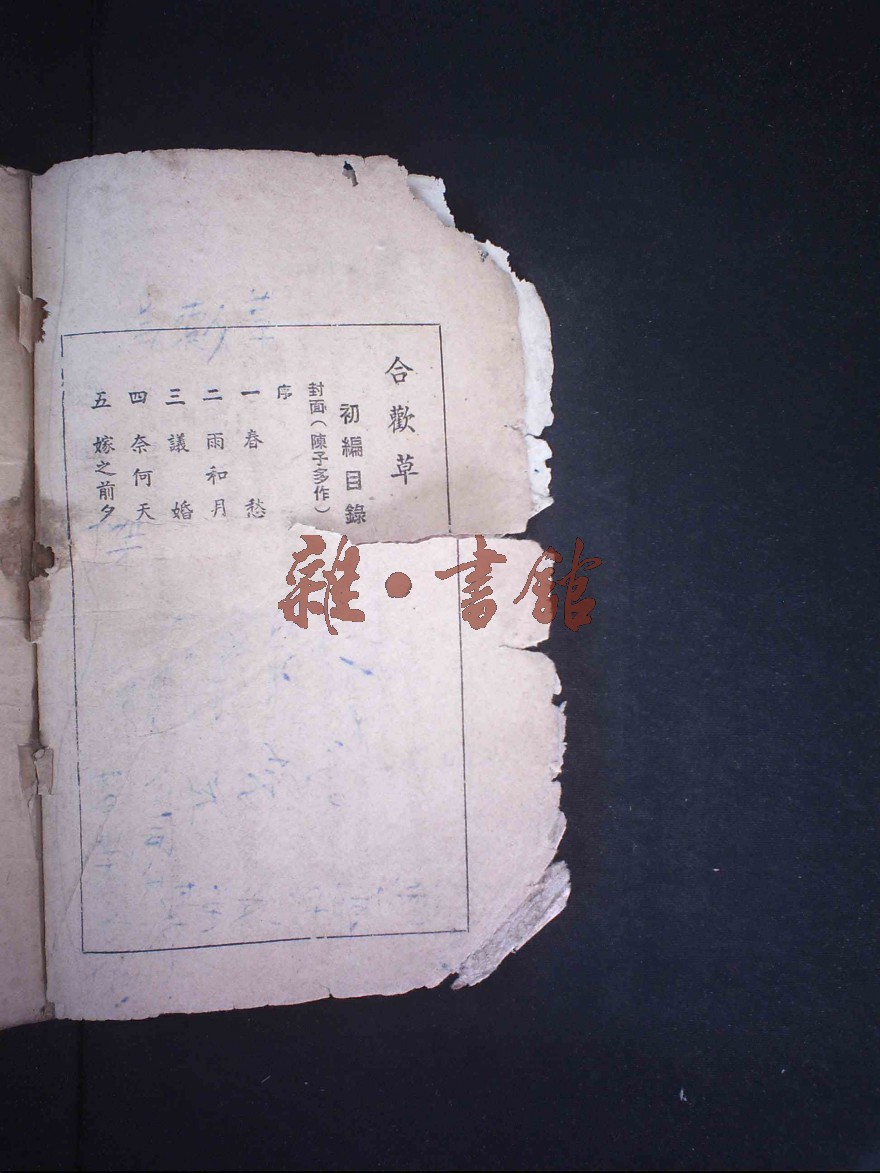 合歡草
初編目錄
封面（陳子多作）
序
一 春愁
二 雨和月
三 議婚
四 奈何天
五 嫁之前夕
雜·書館